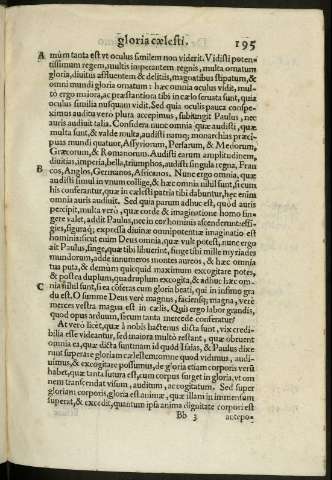 gloria cælesti. 195
A mūm tanta est vt oculus similem non viderit. Vidisti poten-
tissimum regem, multis imperantem regnis, multa ornatum
gloria, diuitiis affluentem & delitiis, magnatibus stipatum, &
omni mundi gloria ornatum: hæc omnia oculus vidit, mul-
tò ergo maiora, ac præstantiora tibi in cælo seruata sunt, quia
oculus similia nusquam vidit. Sed quia oculis pauca conspe-
ximus auditu verò plura accepimus, subiungit Paulus, nec
auris audiuit talia. Considera nunc omnia quæ audisti, quæ
multa sunt, & valde multa, audisti namq; monarchias præci-
puas mundi quatuor, Assyriorum, Persarum, & Medorum,
Græcorum, & Romanorum. Audisti earum amplitudinem,
diuitias, imperia, bella, triumphos, audisti singula regna, Fran
B cos, Anglos, Germanos, Afticanos. Nunc ergo omnia, quæ
audisti simul in vnum collige, & hæc omnia nihil sunt, si cum
his conferantur, quæ in cælesti patria tibi dabuntur, hęc enim
omnia auris audiuit. Sed quia parum adhuc est, quod auris
percipit, multa verò, quæ corde & imaginatione homo fin-
gere valet, addit Paulus, nec in cor hominis ascenderunt: effi-
gies, figuraq; expressa diuinæ omnipotentiæ imaginatio est
hominis: sicut enim Deus omnia, quæ vult potest, nunc ergo
ait Paulus, finge, quæ tibi libuerint, finge tibi mille myriades
mundorum, adde innumeros montes aureos, & hæc omnia
tua puta, & demum quicquid maximum excogitare potes,
& postea duplum, quadruplum excogita, & adhuc hæc om-
C nia nihil sunt, si ea cōferas cum gloria beati, qui in infimo gra
du est. O summe Deus verè magnus, faciensq; magna, verè
merces vestra magna est in cælis. Quis ergo labor grandis,
quod opus arduum, secum tanta mercede conferatur?
At verò licèt, quæ à nobis hactenus dicta sunt, vix credi-
bilia esse videantur, sed maiora multò restant, quæ obruent
omnia ea, quæ dicta sunt: nam id quod Isaias, & Paulus dixe
runt superare gloriam cælestem: omne quod vidimus, audi-
uimus, & excogitare possumus, de gloria etiam corporis verū
habet, quæ tanta futura est, cum corpus surget in gloria, vt om
nem transcendat visum, auditum, ac cogitatum. Sed super
gloriam corporis, gloria est animæ, quæ illam in immensum
superat, & excedit, quantum ipsa anima dignitate corpori est
Bb 3 antepo-